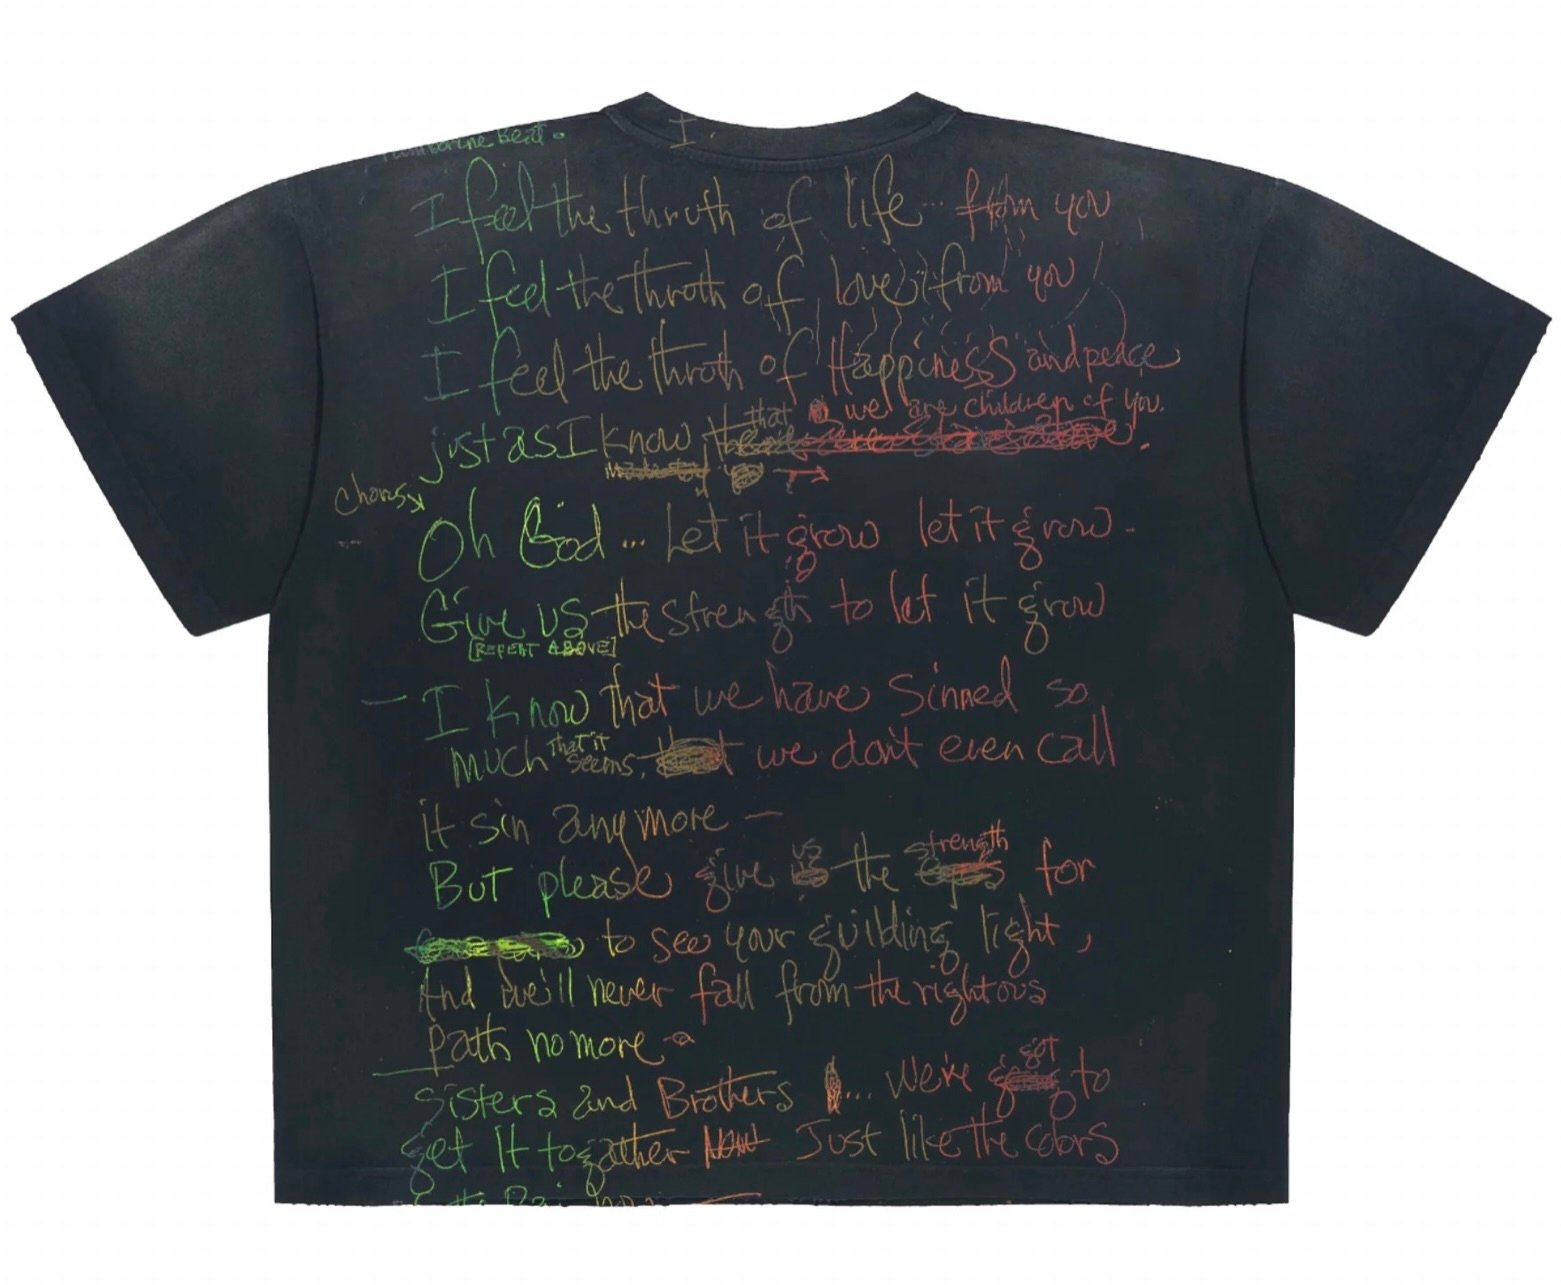 I
Beat.
I feel the thruth of life... from you
I feel the throth of love from you
I feel the throth of Happiness and peace
that we are children of you.
just as I know
chorus
Oh God... Let it grow let it grow.
Give us the strength to let it grow
[REPEAT ABOVE]
— I know that we have sinned so
much that it seems, we don't even call
it sin anymore —
But please give us the strength for
to see your guilding light,
And we'll never fall from the rightous
path no more
Sisters and Brothers ... We're got to
get It togather Now Just like the colors